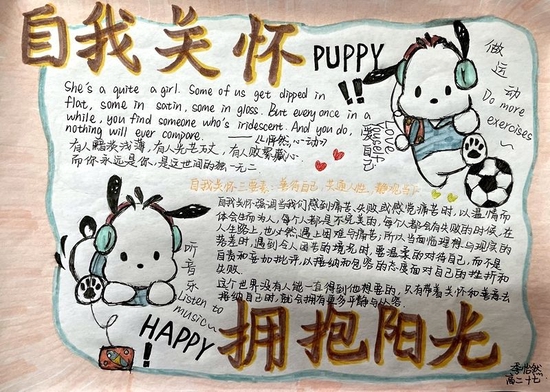 自我关怀
PUPPY
!!
做运动
Do more
exercises~
She's a quite a girl. Some of us get dipped in
flat, some in satin, some in gloss. But everyonce in a
while, you find someone who's iridescent. And you do,
nothing will ever compare.
——《怦然心动》
有人黯淡浅薄,有人光芒万丈,有人败絮藏心
而你永远是你,是这世间的独一无二
爱自己
Love
Yourself
自我关怀三要素:善待自己,共通人性,静观当下
自我关怀强调当我们感到痛苦、失败或感觉痛苦时,以温情而
体会生而为人,每个人都是不完美的,每个人都会有失败的时候,在
人生路上,也必然遇上困难与痛苦,所以当面临理想与现实的
落差时,遇到令人困苦的境况时,要温柔的对待自己,而不是
自责和妄加批评,以接纳和包容的态度面对自己的挫折和
失败.
这个世界没有人能一直得到他想要的,只有带着关怀和善意去
接纳自己时,就会拥有更多平静与从容
听音乐
Listen to
music~
HAPPY
!
拥抱阳光
李怡然
高二十七